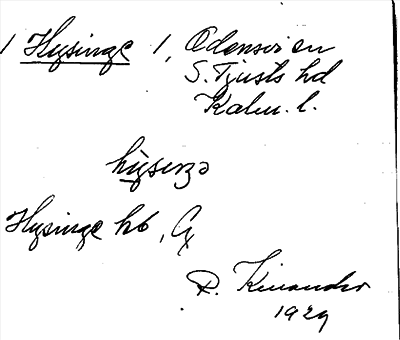 1 Hysinge 1, Odensvi sn
S. Tjusts hd
Kalm. l.
hysıŋə
Hysinge hb, Gx
R. Kinander
1929